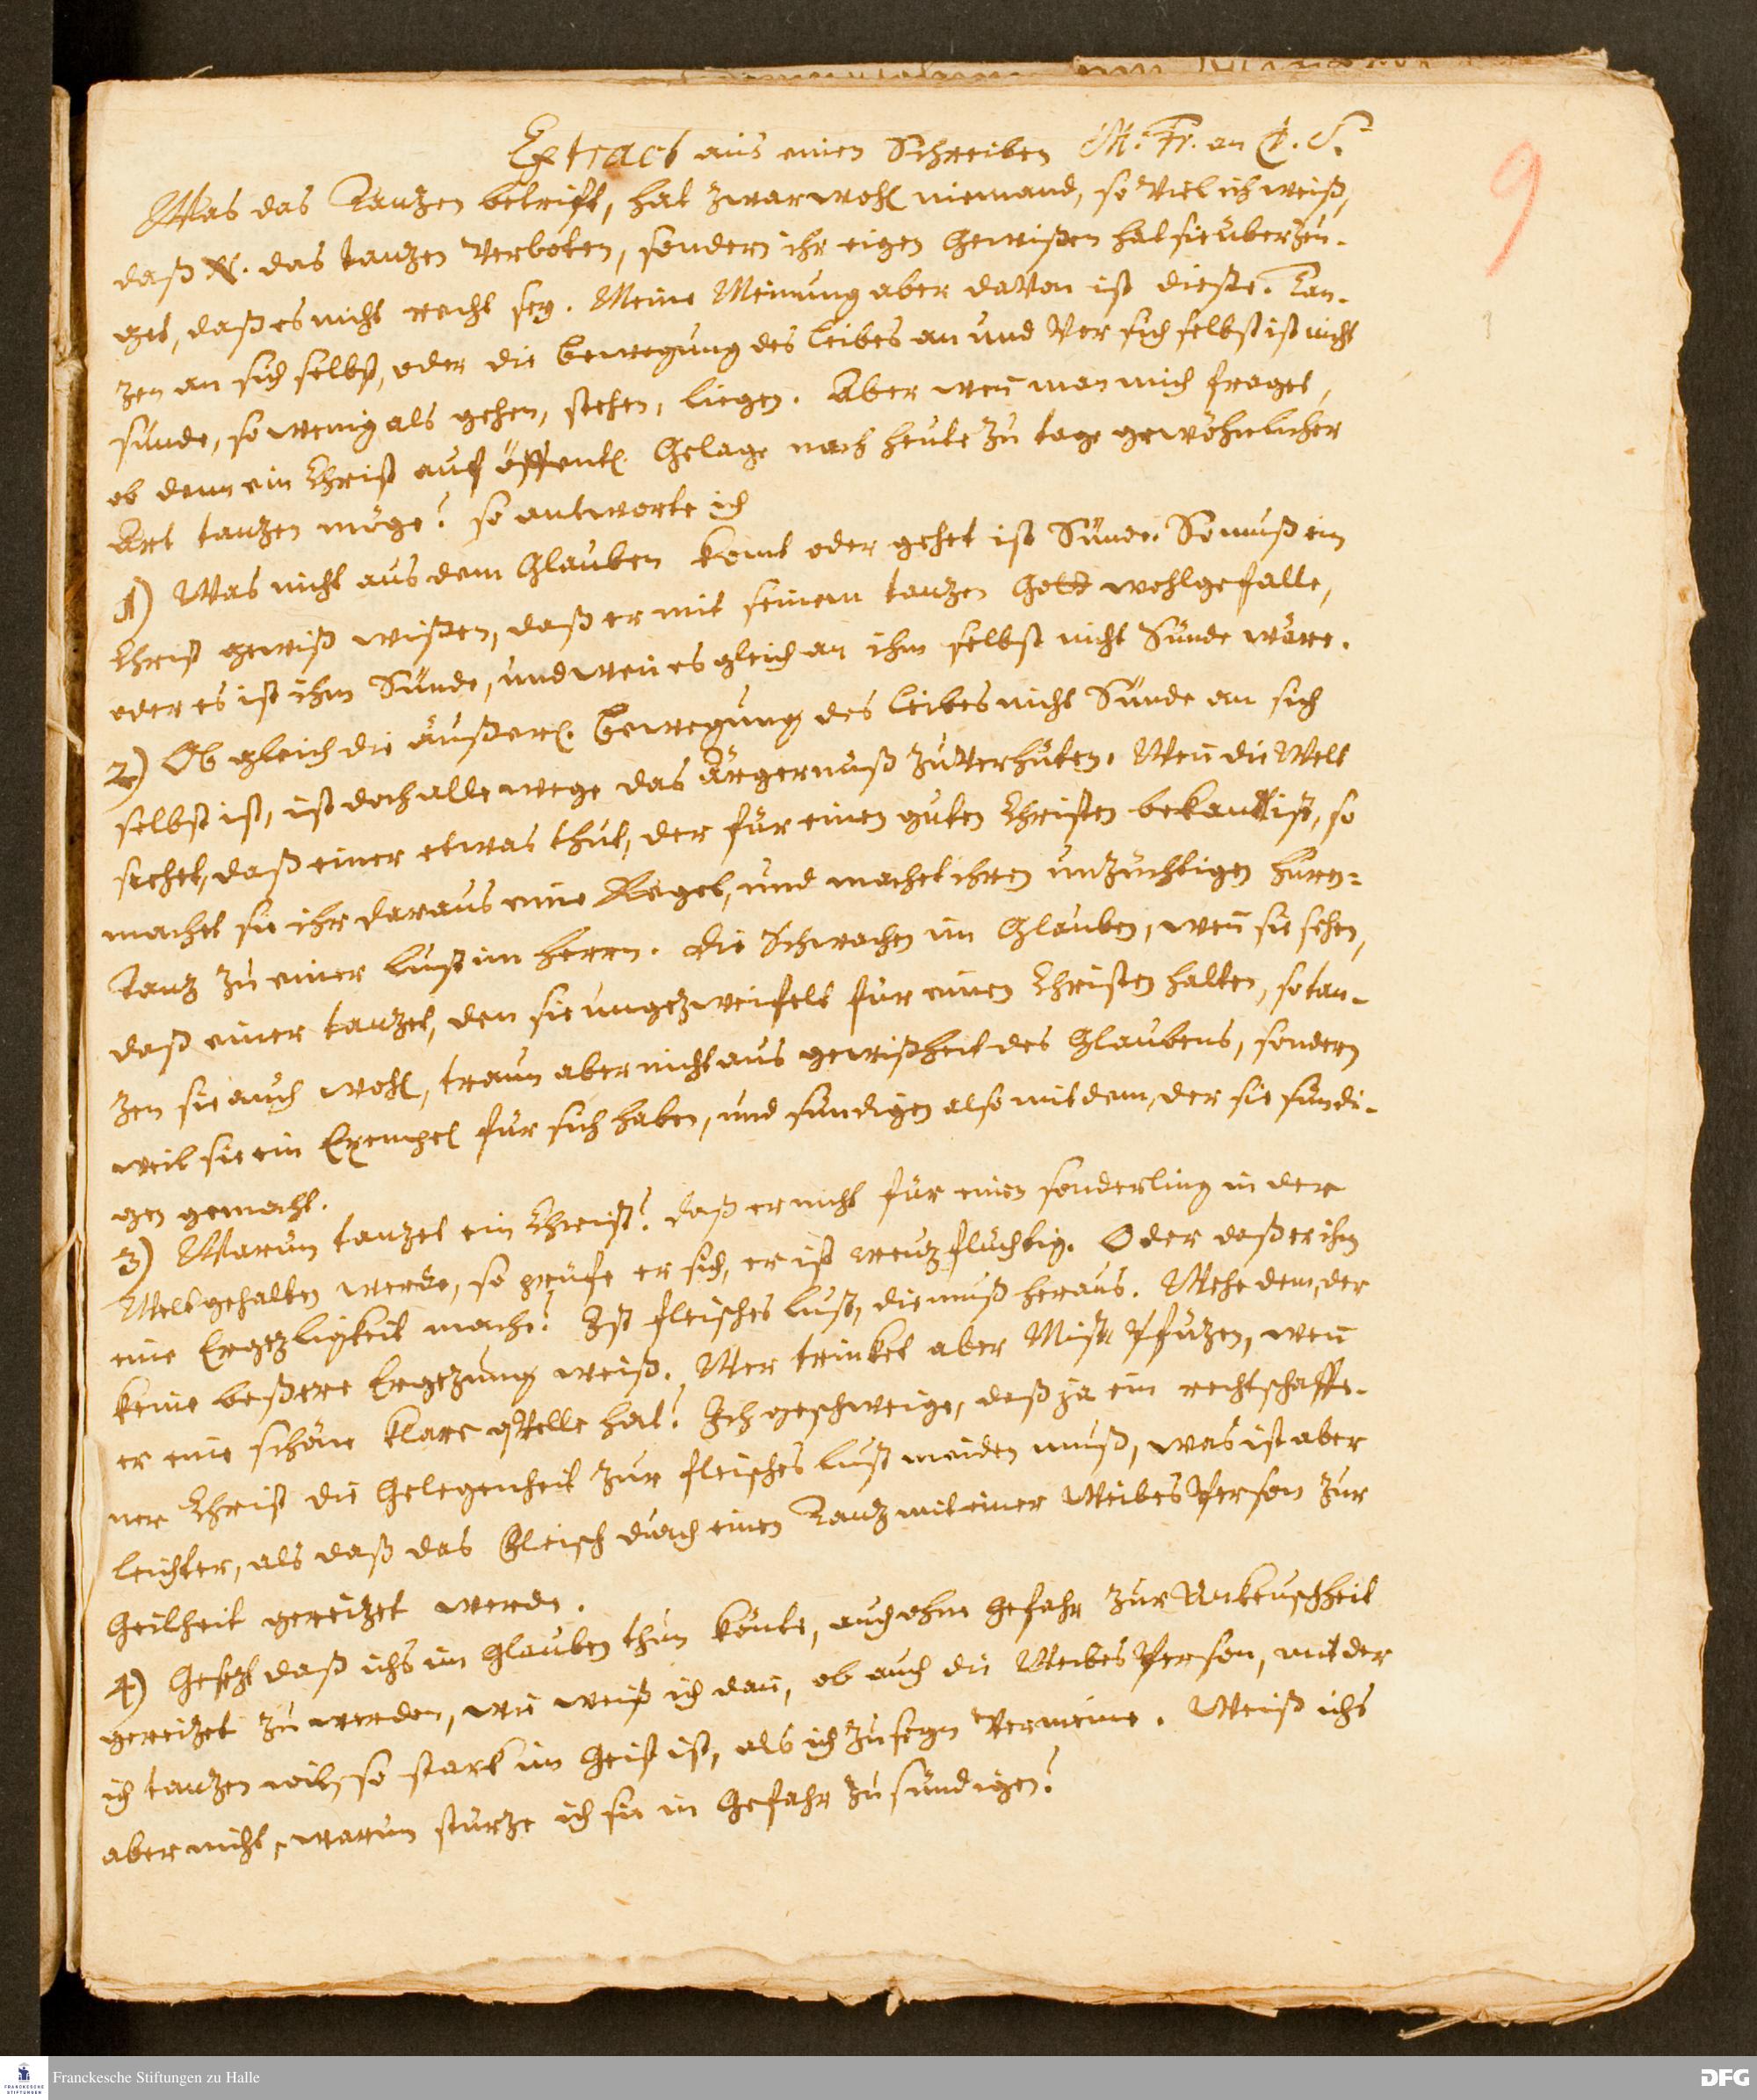 Extract aus einen Schreiben M. Fr. an C. S.
9
Was das Tantzen betrift, hat zwar wohl niemand, so viel ich weiß,
daß N. das tantzen verboten, sondern ihr eigen Gewißen hat sie überzeu-
get, daß es nicht recht sey. Meine Meinung aber davon ist dieße. Tan-
1
zen an sich selbst, oder die bewegung des leibes an und vor sich selbst ist nicht
sünde, so wenig als gehen, stehen, liegen. Aber weñ man mich fraget,
ob denn ein Christ auf öffentl. Gelage nach heute zu tage gewöhnlicher
Art tantzen möge? so antworte ich
1) Was nicht aus dem Glauben komt oder gehet ist Sünde. So muß ein
Christ gewiß wißen, daß er mit seinem tantzen Gott wohlgefalle,
oder es ist ihm Sünde, und weñ es gleich an ihm selbst nicht Sünde wäre.
2) Ob gleich die äußerl. bewegung des leibes nicht Sünde an sich
selbst ist, ist doch allewege das Ärgernuß zu verhüten. Weñ die Welt
siehet, daß einer etwas thut, der für einen guten Christen bekant ist, so
machet sie ihr daraus eine Regel, und machet ihren unzüchtigen huren-
Tantz zu einer lust im herrn. die Schwachen im Glauben, weñ sie sehen,
daß einer tantzet, den sie ungezweifelt für einen Christen halten, so tan-
zen sie auch wohl, traun aber nicht aus gewißheit des Glaubens, sondern
weil sie ein Exempel für sich haben, und sündigen also mit dem, der sie sündi-
gen gemacht.
3) Warum tantzet ein Christ? daß er nicht für einen sonderling in der
Welt gehalten werde, so prüfe er sich, er ist creutzflüchtig. Oder daß er ihm
eine Ergezligkeit mache? Ist fleisches lust, die muß heraus. Wehe dem, der
keine beßere Ergezung weiß. Wer trinket aber Mist Pfützen, weñ
er eine schöne klare qvelle hat? Ich geschweige, daß ja ein rechtschaffe-
ner Christ die Gelegenheit zur fleisches lust meiden muß, was ist aber
leichter, als daß das Fleisch durch einen Tantz mit einer Weibes Person zur
Geilheit gereitzet werde.
4) Gesezt daß ichs im Glauben thun könte, auch ohne gefahr zur Unkeuschheit
gereitzet zu werden, wie weiß ich dañ, ob auch die Weibes Person, mit der
ich tantzen wil, so stark im Geist ist, als ich zu seyn vermeine. Weiß ichs
aber nicht, warum stürze ich sie in Gefahr zu sündigen?
FRANCKESCHE STIFTUNGEN
Franckesche Stiftungen zu Halle
DFG